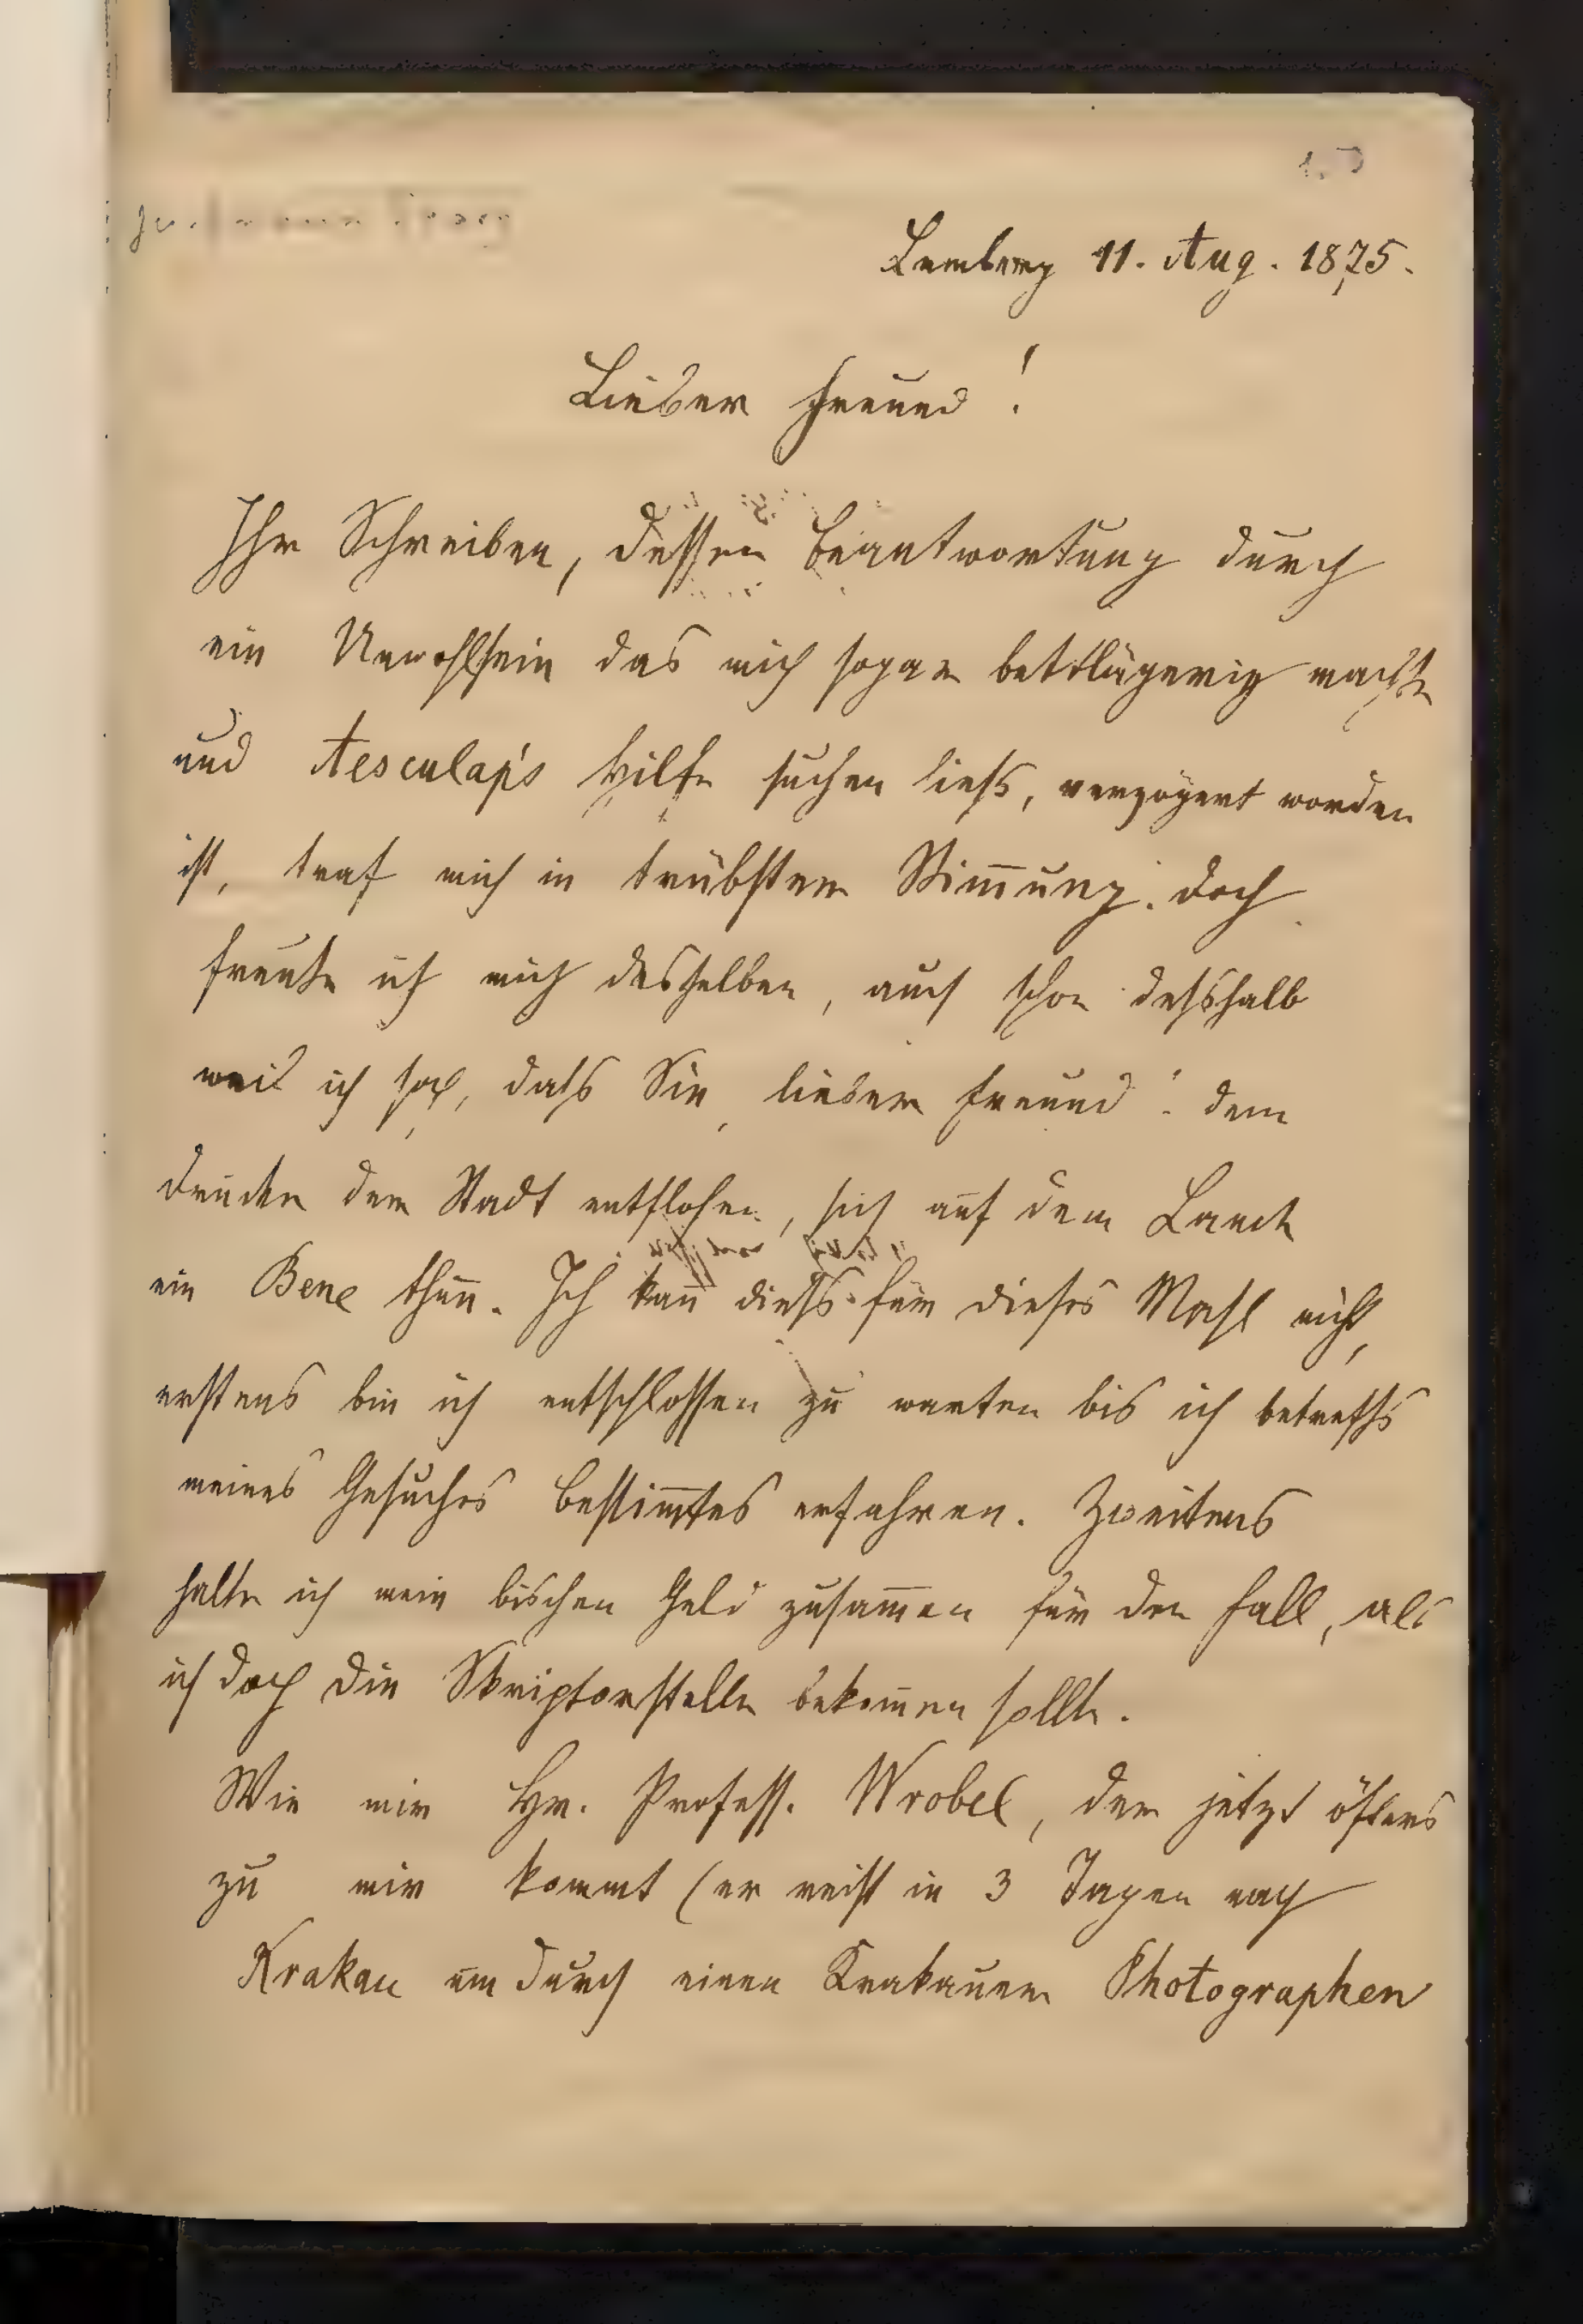 Lemberg 11. Aug. 1875.
Lieber Freund!
Ihr Schreiben, dessen Beantwortung durch
ein Unwohlsein das mich sogar bettlägerig machte
und Aesculap's Hilfe suchen liess, verzögert worden
ist, traf mich in trübster Stim̄ung. Doch
freute ich mich desselben, auch schon desshalb
weil ich sah, dass Sie, lieber Freund! dem
Drucke der Stadt entflohen, sich auf dem Lande
ein Bene thun̄. Ich kan̄ diess für dieses Mahl nicht,
erstens bin ich entschlossen zu warten bis ich betreffs
meines Gesuches Bestim̄tes erfahren. Zweitens
halte ich mein bischen Geld zusam̄en für den Fall, als
ich doch die Skriptorstelle bekom̄en sollte.
Wie mir Hr. Profess. Wrobel, der jetzt öfters
zu mir kommt (er reist in 3 Tagen nach
Krakau um durch einen Krakauer Photographen